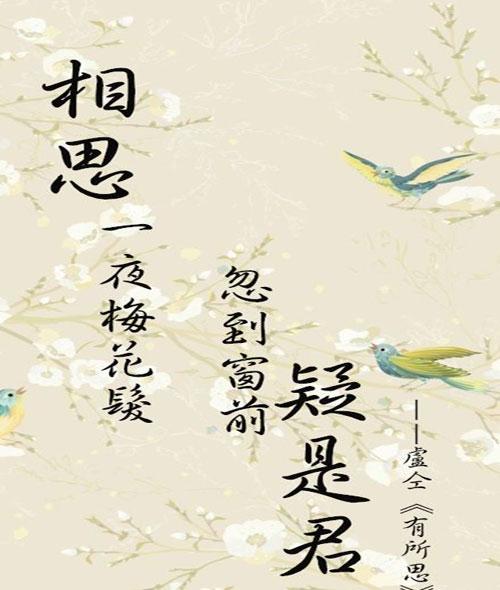 相思
一夜梅花髮
忽到窗前
疑是君
——盧仝《有所思》